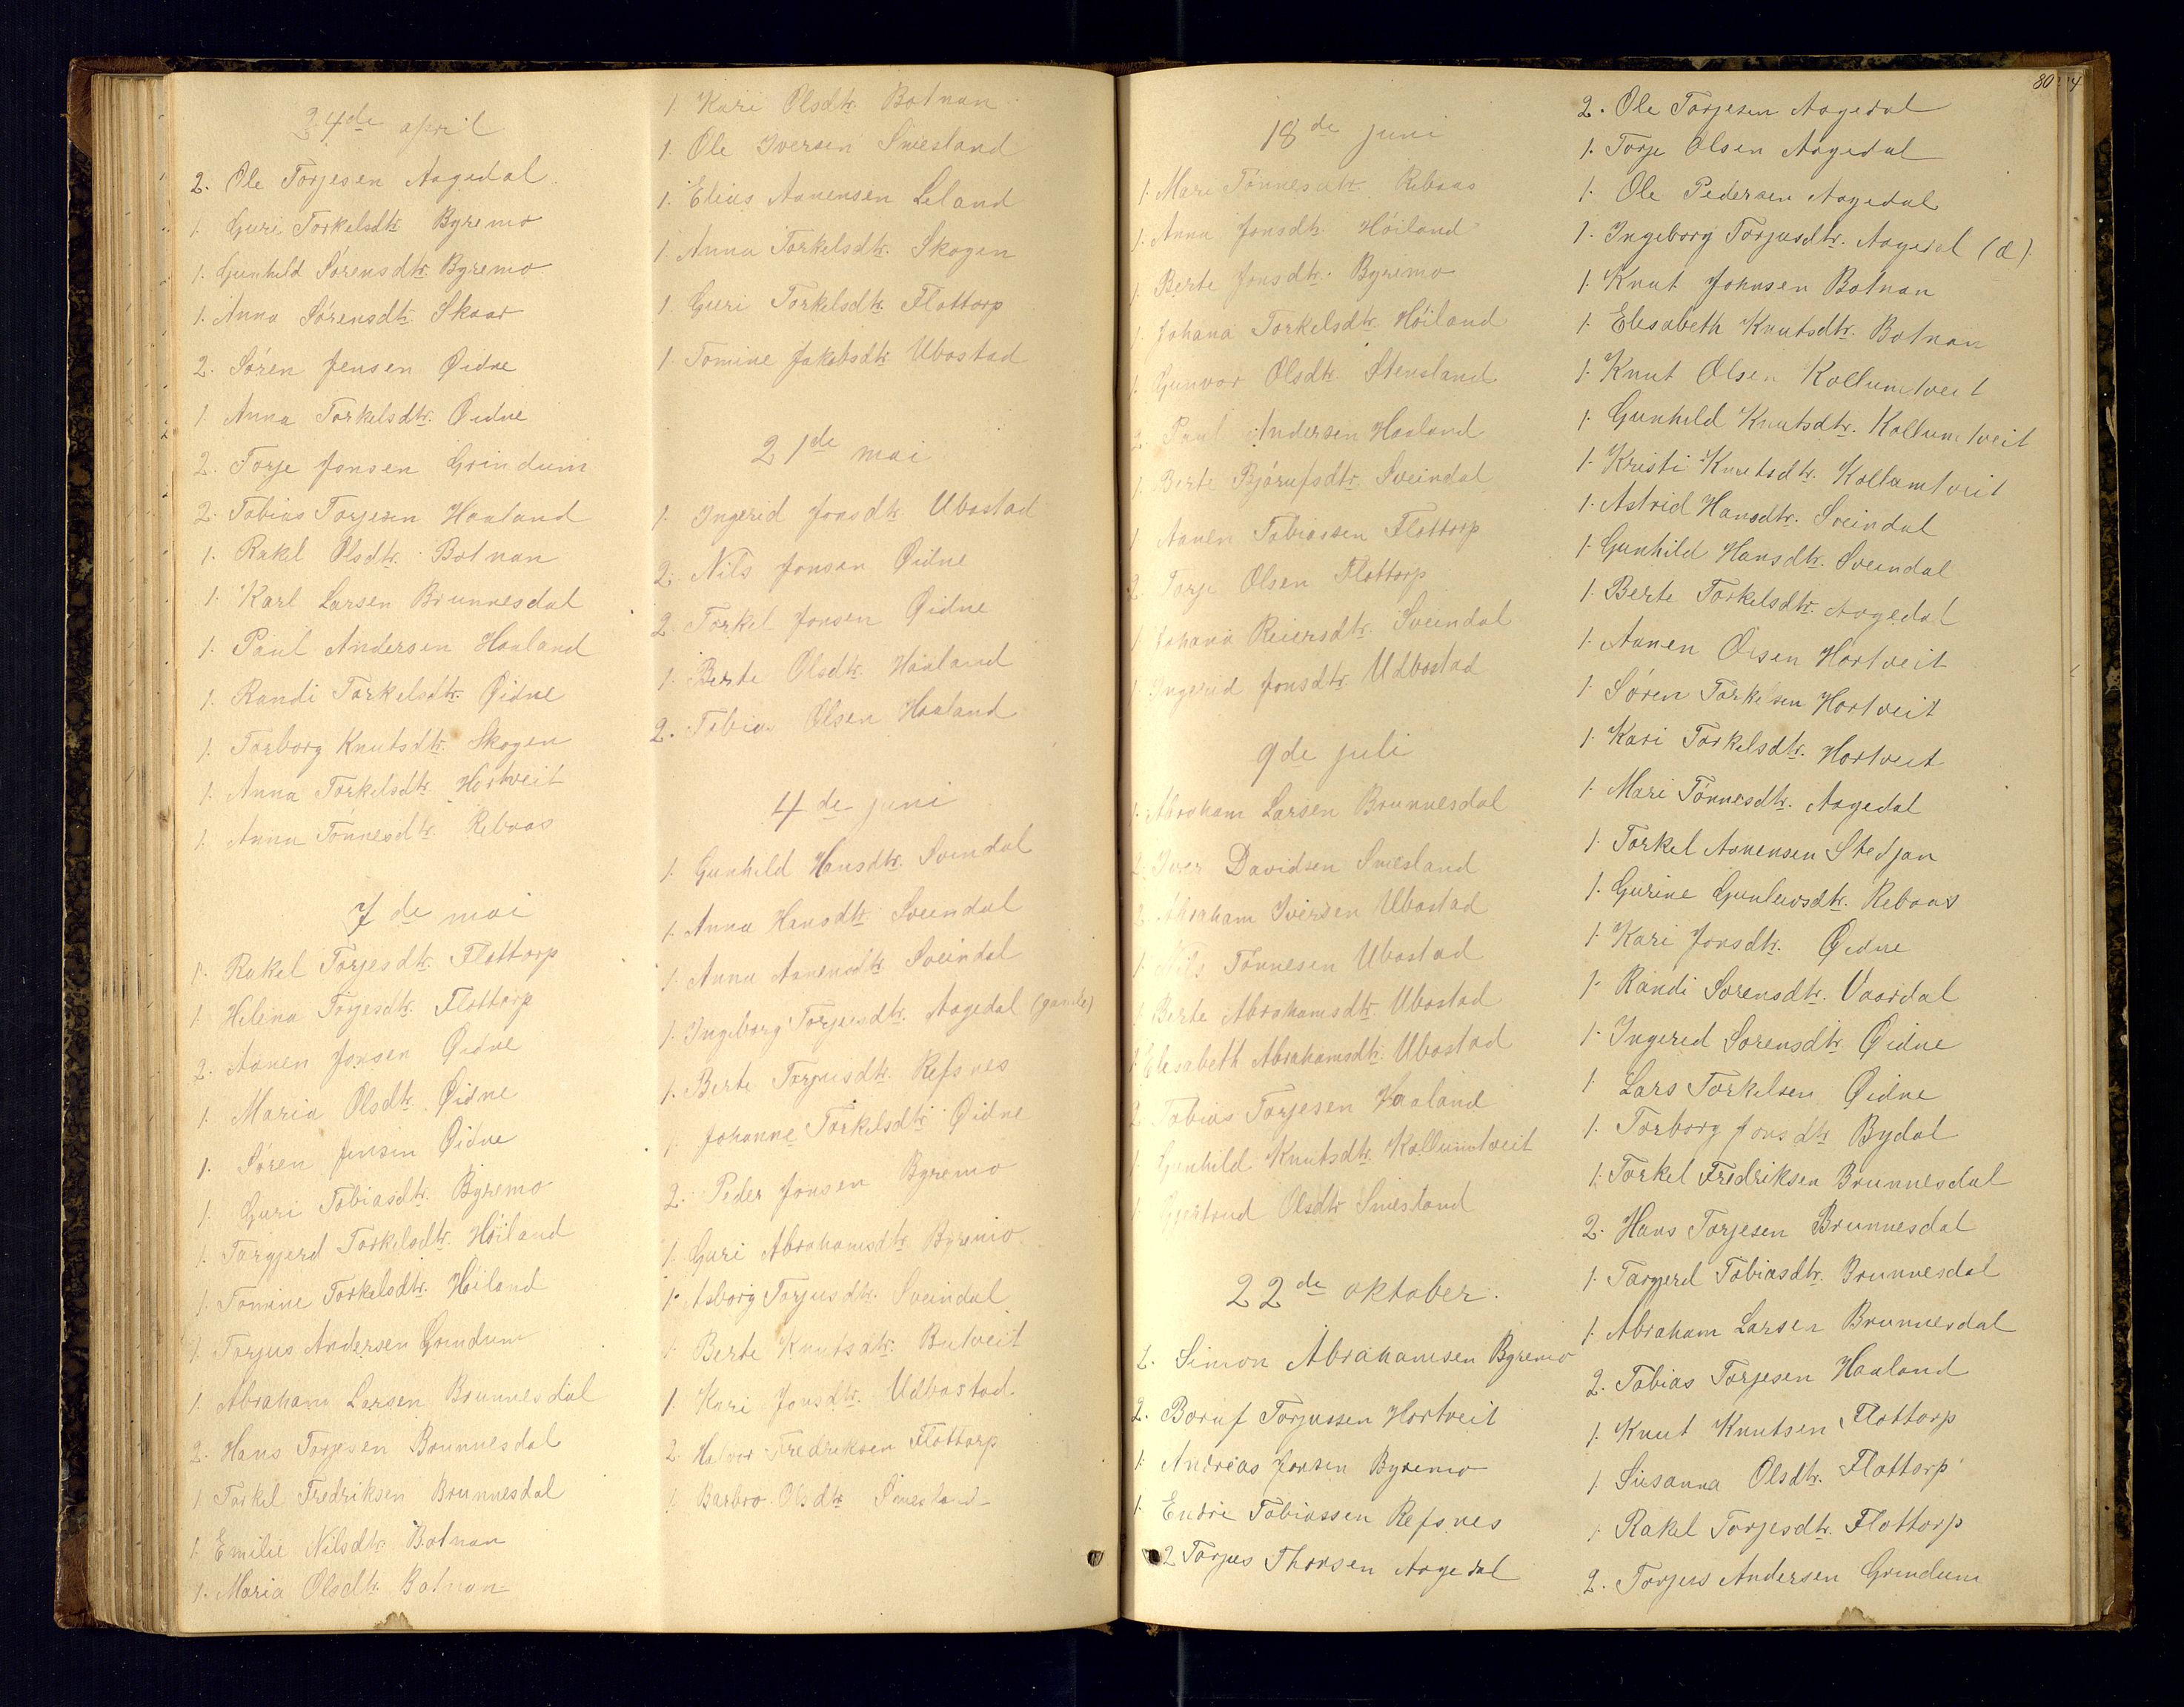 24de april
2. Ole Torjesen Aagedal
1. Guri Torkelsdtr. Byremo
1. Gunhild Sørensdtr. Byremo
1. Anna Sørensdtr. Skaar
2. Søren Jensen Øidne
1. Anna Torkelsdtr. Øidne
2. Torje Jonsen Grindum
2. Tobias Torjesen Haaland
1. Rakel Olsdtr. Botnan
1. Karl Larsen Brunnesdal
1. Paul Andersen Haaland
1. Randi Torkelsdtr. Øidne
1. Torborg Knutsdtr. Skogen
1. Anna Torkelsdtr. Hortveit
1. Anna Tønnesdtr. Rebaas
7de mai
1. Rakel Torjesdtr. Flottorp
1. Helena Torjesdtr. Flottorp
2. Aanen Jonsen Øidne
1. Maria Olsdtr. Øidne
1. Søren Jensen Øidne
1. Guri Tobiasdtr. Byremo
1. Targjerd Torkelsdtr. Høiland
1. Tomine Torkelsdtr. Høiland
1. Torjus Andersen Grindum
1. Abraham Larsen Brunnesdal
2. Hans Torjesen Brunnesdal
1. Torkel Fredriksen Brunnesdal
1. Emilie Nilsdtr. Botnan
1. Maria Olsdtr. Botnan
1. Kari Olsdtr. Botnan
1. Ole Iversen Smesland
1. Elias Aanensen Leland
1. Anna Torkelsdtr. Skogen
1. Guri Torkelsdtr. Flottorp
1. Tomine Jakobsdtr. Ubostad
21de mai
1. Ingerid Jonsdtr. Ubostad
2. Nils Jonsen Øidne
2. Torkel Jonsen Øidne
1. Berte Olsdtr. Haaland
2. Tobias Olsen Haaland
4de juni
1. Gunhild Hansdtr. Sveindal
1. Anna Hansdtr. Sveindal
1. Anna Aanensdtr. Sveindal
1. Ingeborg Torjusdtr. Aagedal (gamle)
1. Berte Torjusdtr. Refsnes
1. Johanne Torkelsdtr. Øidne
2. Peder Jonsen Byremo
1. Guri Abrahamsdtr. Byremo
1. Asborg Torjusdtr. Sveindal
1. Berte Knutsdtr. Butveit
1. Kari Jonsdtr. Udbostad
2. Halvor Fredriksen Flottorp
1. Barbro Olsdtr. Smesland
18de juni
1. Mari Tønnesdtr. Rebaas
1. Anna Jonsdtr. Høiland
1. Berte Jonsdtr. Byremo
1. Johana Torkelsdtr. Høiland
1. Gunvor Olsdtr. Stensland
2. Paul Andersen Haaland
1. Berte Bjørufsdtr. Sveindal
1. Aanen Tobiassen Flottorp
2. Torje Olsen Flottorp
1. Johana Reiersdtr. Sveindal
1. Ingerid Jonsdtr. Udbostad
9de juli
1. Abraham Larsen Brunnesdal
2. Iver Davidsen Smesland
2. Abraham Iversen Ubostad
1. Nils Tønnesen Ubostad
1. Berte Abrahamsdtr. Ubostad
1. Elisabeth Abrahamsdtr. Ubostad
2. Tobias Torjesen Haaland
1. Gunhild Knutsdtr. Kollumtveit
1. Gjertrud Olsdtr. Smesland
22de oktober.
2. Simon Abrahamsen Byremo
2. Boruf Torjussen Hortveit
1. Andreas Jonsen Byremo
1. Endre Tobiassen Refsnes
2 Torjus Thorsen Aagedal
80 4
2. Ole Torjesen Aagedal
1. Torje Olsen Aagedal
1. Ole Pedersen Aagedal
1. Ingeborg Torjusdtr. Aagedal (æ)
1. Knut Johnsen Botnan
1. Elisabeth Knutsdtr. Botnan
1. Knut Olsen Kollumtveit
1. Gunhild Knutsdtr. Kollumtveit
1. Kristi Knutsdtr. Kollumtveit
1. Astrid Hansdtr. Sveindal
1. Gunhild Hansdtr. Sveindal
1. Berte Torkelsdtr. Aagedal
1. Aanen Olsen Hortveit
1. Søren Torkelsen Hortveit
1. Kari Torkelsdtr. Hortveit
1. Mari Tønnesdtr. Aagedal
1. Torkel Aanensen Stedjan
1. Gurine Gunleivsdtr. Rebaas
1. Kari Jonsdtr. Øidne
1. Randi Sørensdtr. Vaardal
1. Ingerid Sørensdtr. Øidne
1. Lars Torkelsen Øidne
1. Torborg Jonsdtr. Bydal
1. Torkel Fredriksen Brunnesdal
2. Hans Torjesen Brunnesdal
1. Targjerd Tobiasdtr. Brunnesdal
1. Abraham Larsen Brunnesdal
2. Tobias Torjesen Haaland
1. Knut Knutsen Flottorp
1. Susanna Olsdtr. Flottorp
1. Rakel Torjesdtr. Flottorp
2. Torjus Andersen Grindum